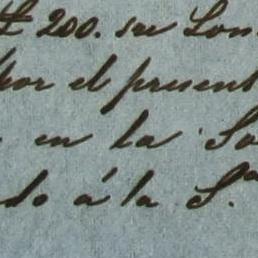 £ 200. su Lon
por el present
en la So
do á la S.ª